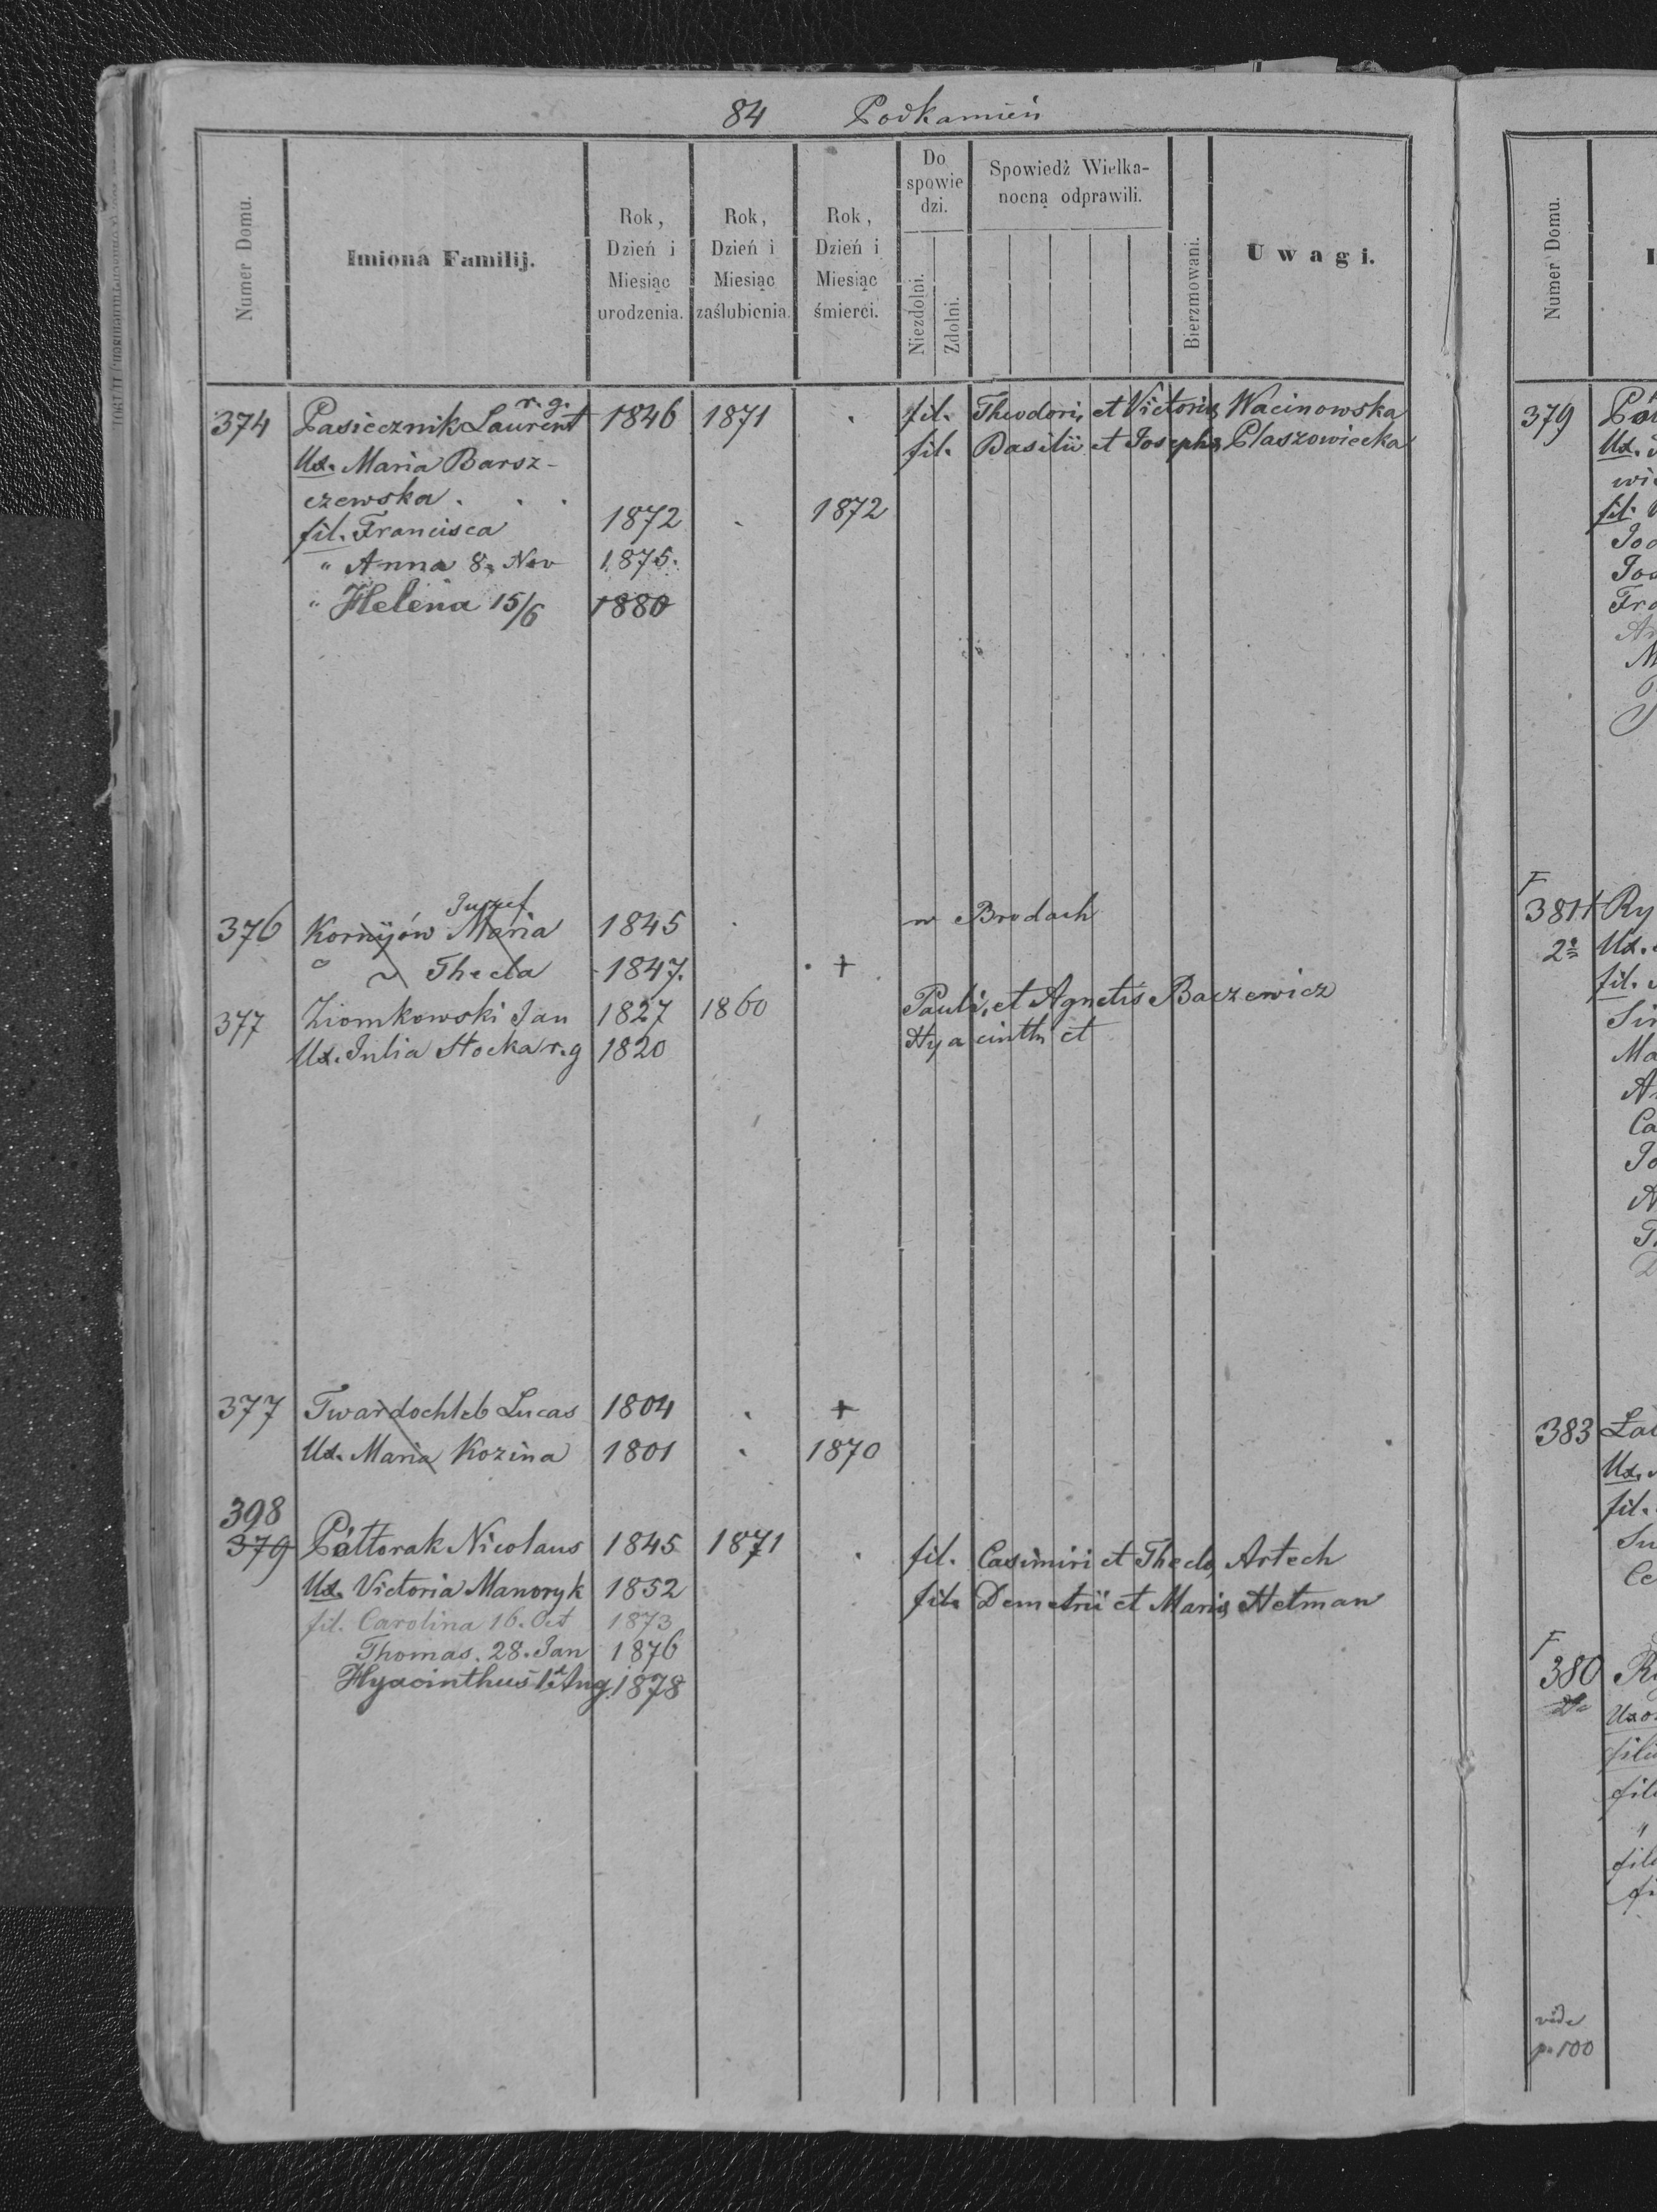 84 Podkamień
Numer Domu.
Imiona Familij.
Rok, Dzień i Miesiąc urodzenia.
Rok, Dzień i Miesiąc zaślubienia.
Rok, Dzień i Miesiąc śmierci.
Do spowiedzi.
Niezdolni.
Zdolni.
Spowiedź Wielkanocną odprawili.
Bierzmowani.
Uwagi.
r. g.
374 Pasiecznik Laurent 1846 1871 . fil. Theodori, et Victoria Wacinowska
Ux. Maria Barsz- fil. Basilii et Josepha Płaszowiecka
czewska . . .
fil. Francisca 1872 . 1872
" Anna 8. Nov 1875.
" Helena 15/6 1880
Juzef
376 Kornijów Maria 1845 . w Brodach
" ~ Thecla 1847. . +
377 Ziomkowski Jan 1827 1860 Pauli, et Agnetis Baczewicz
Ux. Julia Stocka r. g 1820 Hyacinthi et
377 Twardochleb Lucas 1804 . +
Ux. Maria Kozina 1801 . 1870
398
379 Półtorak Nicolaus 1845 1871 . fil. Casimiri et Thecla Artech
Ux. Victoria Manoryk 1852 fil. Demetrii et Maria Hetman
fil. Carolina 16. Oct 1873
Thomas. 28. Jan 1876
Hyacinthus 1 Aug. 1878
Numer Domu.
379
Ux.
fil.
381
2
Ux.
fil.
383
Ux.
fil.
380
vide
p. 100